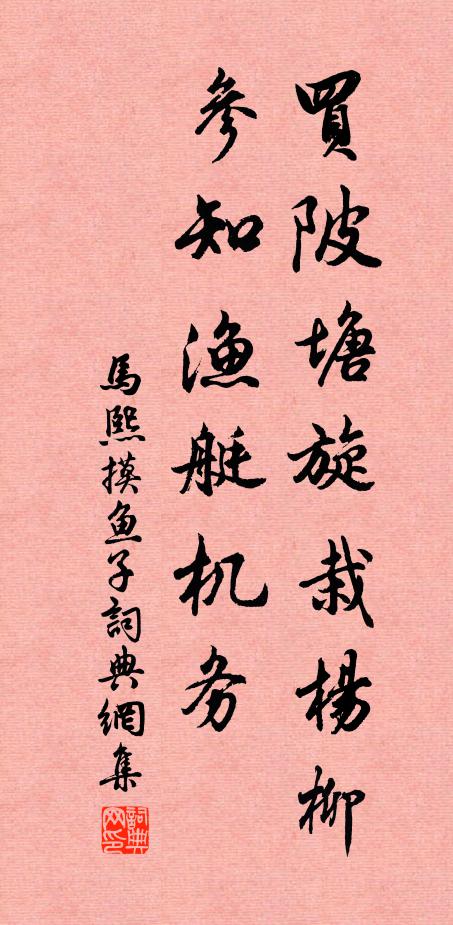 買陂塘旋栽楊柳
參知漁艇机务
馬熙摸鱼子詞典網集
詞典网印